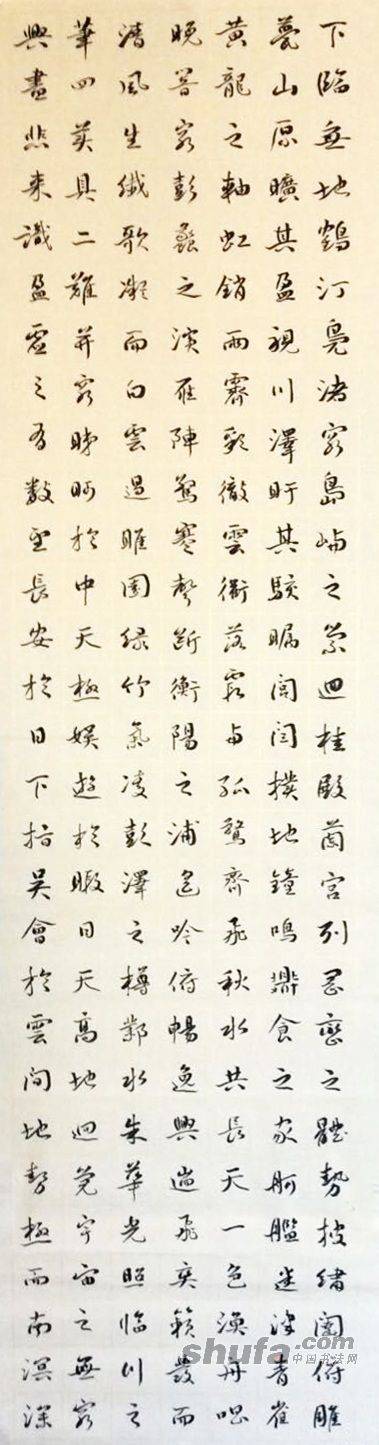 下臨無地鶴汀鳧渚窮島嶼之縈迴桂殿蘭宮列岡巒之體勢披繡闥俯雕
甍山原曠其盈視川澤盱其駭矚閭閻撲地鐘鳴鼎食之家舸艦迷津青雀
黃龍之軸虹銷雨霽彩徹雲衢落霞與孤鶩齊飛秋水共長天一色漁舟唱
晚響窮彭蠡之濱雁陣驚寒聲斷衡陽之浦遙吟俯暢逸興遄飛爽籟發而
清風生纖歌凝而白雲遏睢園綠竹氣凌彭澤之樽鄴水朱華光照臨川之
華四美具二難并窮睇眄於中天極娛遊於暇日天高地迥覺宇宙之無窮
興盡悲來識盈虛之有數望長安於日下指吳會於雲間地勢極而南溟深
shufa.com
中国书法网